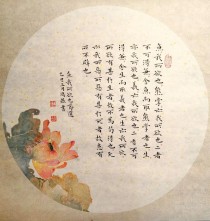 魚我所欲也熊掌亦我所欲也二者
不可得兼舍魚而取熊掌者也生
亦我所欲也義亦我所欲也二者不可
得兼舍生而取義者也生亦我
所欲所欲有甚於生者故不為苟得也死
亦我所惡所惡有甚於死者故患有所
不辟也
魚我所欲也